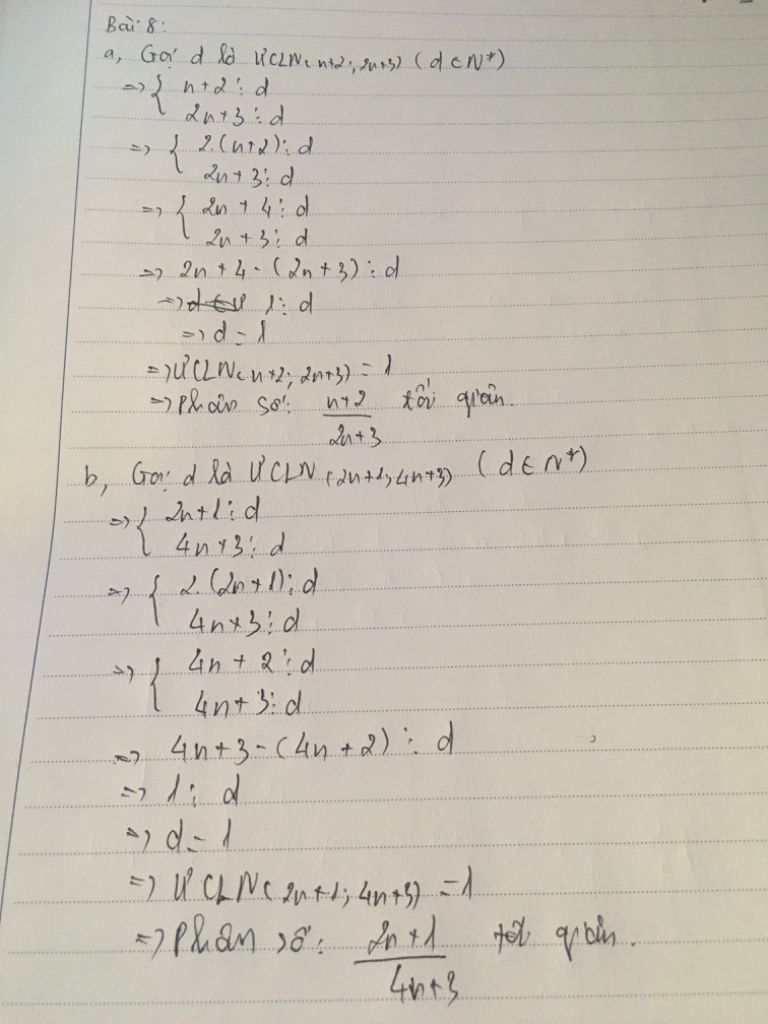 Bài 8:
a, Gọi d là ƯCLN(n+2; 2n+3) (d ∈ N*)
=> { n+2 ⋮ d
2n+3 ⋮ d
=> { 2.(n+2) ⋮ d
2n+3 ⋮ d
=> { 2n+4 ⋮ d
2n+3 ⋮ d
=> 2n+4-(2n+3) ⋮ d
=> 1 ⋮ d
=> d = 1
=> ƯCLN(n+2; 2n+3) = 1
=> Phân số: n+2 tối giản.
2n+3
b, Gọi d là ƯCLN (2n+1; 4n+3) (d ∈ N*)
=> { 2n+1 ⋮ d
4n+3 ⋮ d
=> { 2.(2n+1) ⋮ d
4n+3 ⋮ d
=> { 4n+2 ⋮ d
4n+3 ⋮ d
=> 4n+3-(4n+2) ⋮ d
=> 1 ⋮ d
=> d = 1
=> ƯCLN(2n+1; 4n+3) = 1
=> Phân số: 2n+1 tối giản.
4n+3